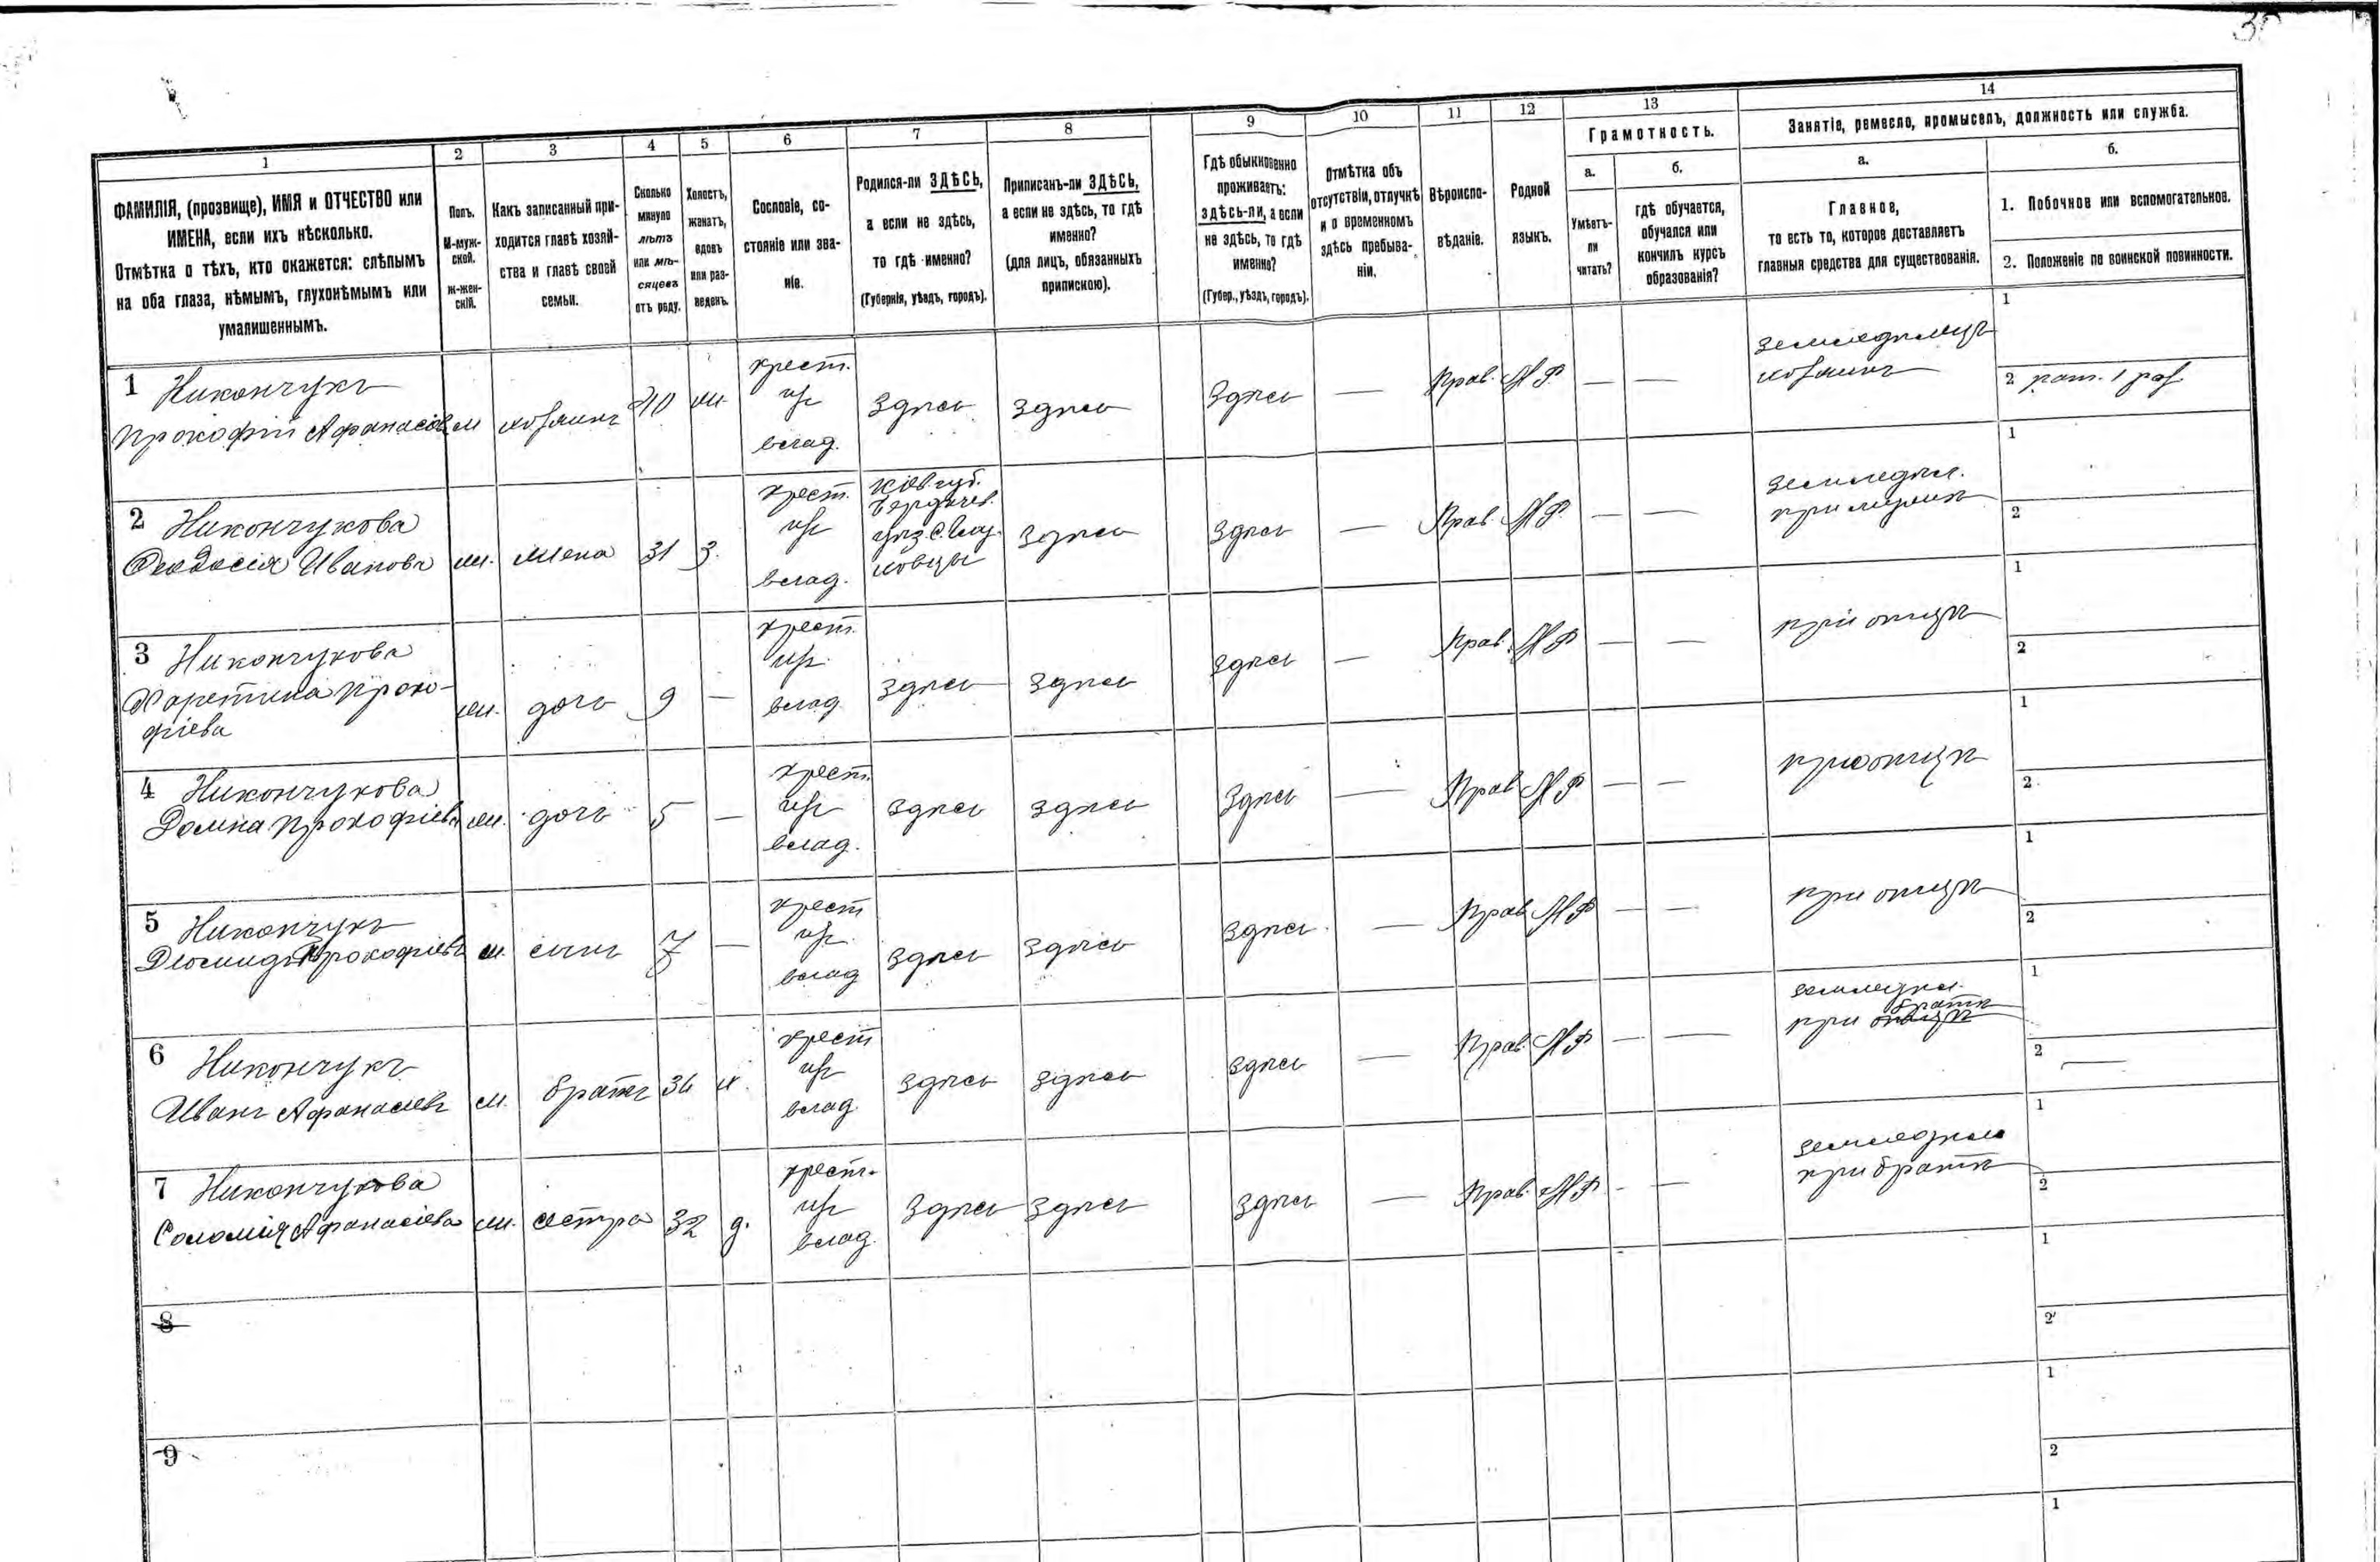 1
2
3
4
5
6
7
8
9
10
11
12
13
14
ФАМИЛІЯ, (прозвище), ИМЯ и ОТЧЕСТВО или
ИМЕНА, если ихъ нѣсколько.
Отмѣтка о тѣхъ, кто окажется: слѣпымъ
на оба глаза, нѣмымъ, глухонѣмымъ или
умалишеннымъ.
Полъ.
М-муж-
ской.
Ж-жен-
скій.
Какъ записанный при-
ходится главѣ хозяй-
ства и главѣ своей
семьи.
Сколько
минуло
лѣтъ
или мѣ-
сяцевъ
отъ роду.
Холостъ,
женатъ,
вдовъ
или раз-
веденъ.
Сословіе, со-
стояніе или зва-
ніе.
Родился-ли ЗДѢСЬ,
а если не здѣсь,
то гдѣ именно?
(Губернія, уѣздъ, городъ).
Приписанъ-ли ЗДѢСЬ,
а если не здѣсь, то гдѣ
именно?
(для лицъ, обязанныхъ
припискою).
Гдѣ обыкновенно
проживаетъ:
ЗДѢСЬ-ЛИ, а если
не здѣсь, то гдѣ
именно?
(Губер., уѣздъ, городъ).
Отмѣтка объ
отсутствіи, отлучкѣ
и о временномъ
здѣсь пребыва-
ніи.
Вѣроиспо-
вѣданіе.
Родной
языкъ.
Грамотность.
а.
Умѣетъ-
ли
читать?
б.
гдѣ обучается,
обучался или
кончилъ курсъ
образованія?
Занятіе, ремесло, промыселъ, должность или служба.
а.
Главное,
то есть то, которое доставляетъ
главныя средства для существованія.
б.
1. Побочное или вспомогательное.
2. Положеніе по воинской повинности.
1 Никончукъ
Прокофій Афанасіев м хозяинъ 40 ж
крест.
изъ
влад.
здѣсь здѣсь здѣсь — Прав. — —
земледѣлецъ
хозяинъ
1
2
2 Никончукова
Феодосія Иванова ж. жена 31 з.
крест.
изъ
влад.
Кіев. губ.
Бердичев.
уѣз. с.
здѣсь здѣсь — Прав. — —
земледѣл.
при мужѣ
1
2
3 Никончукова
Проко-
фіева ж. дочь 9 —
крест.
изъ
влад.
здѣсь здѣсь здѣсь — Прав. — —
при отцѣ
1
2
4 Никончукова
Домна Прокофіева ж. дочь 5 —
крест.
изъ
влад.
здѣсь здѣсь здѣсь — Прав — —
при отцѣ
1
2
5 Никончукъ
Діомидъ Прокофіевъ м. сынъ 7 —
крест
изъ
влад
здѣсь здѣсь здѣсь — Прав — —
при отцѣ
1
2
6 Никончукъ
Иванъ Афанасіевъ м. братъ 34
крест
изъ
влад
здѣсь здѣсь здѣсь — Прав. — —
земледѣл.
при братѣ
1
2 —
7 Никончукова
Соломія Афанасіева ж. сестра 32 д.
крест.
изъ
влад.
здѣсь здѣсь здѣсь — Прав. — —
земледѣл
при братѣ
1
2
8
1
2
9
1
2
1